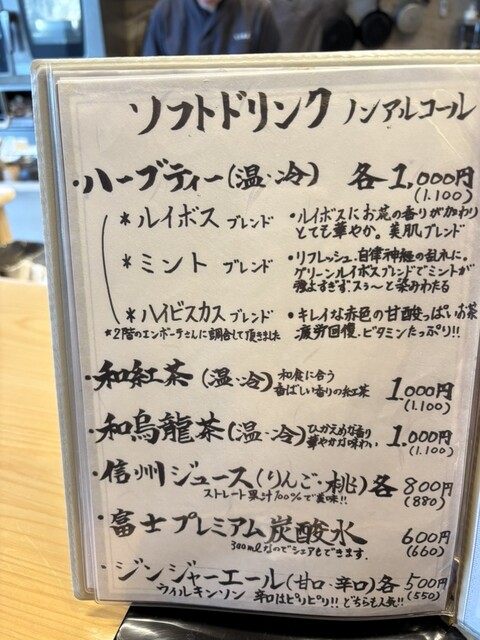 ソフトドリンク ノンアルコール
・ハーブティー(温・冷) 各1,000円
(1.100)
*ルイボス ブレンド ・ルイボスにお花の香りが加わり
とても華やか。美肌ブレンド
*ミント ブレンド ・リフレッシュ、自律神経の乱れに。
グリーンルイボスブレンドでミントが
強よすぎず、スゥ〜と染みわたる
*ハイビスカス ブレンド ・キレイな赤色の甘酸っぱいお茶
疲労回復、ビタミンたっぷり!!
*2階のエンボーテさんに調合して頂きました
・和紅茶(温・冷) 和食に合う
香ばしい香りの紅茶 1.000円
(1.100)
・和烏龍茶(温・冷) ひかえめな香り
華やかな味わい 1.000円
(1.100)
・信州ジュース(りんご・桃) 各 800円
ストレート果汁100%で美味!! (880)
・富士プレミアム炭酸水 600円
300mlなのでシェアもできます。 (660)
・ジンジャーエール(甘口・辛口) 各 500円
ウィルキンソン 辛口はピリピリ!! どちらも人気!! (550)